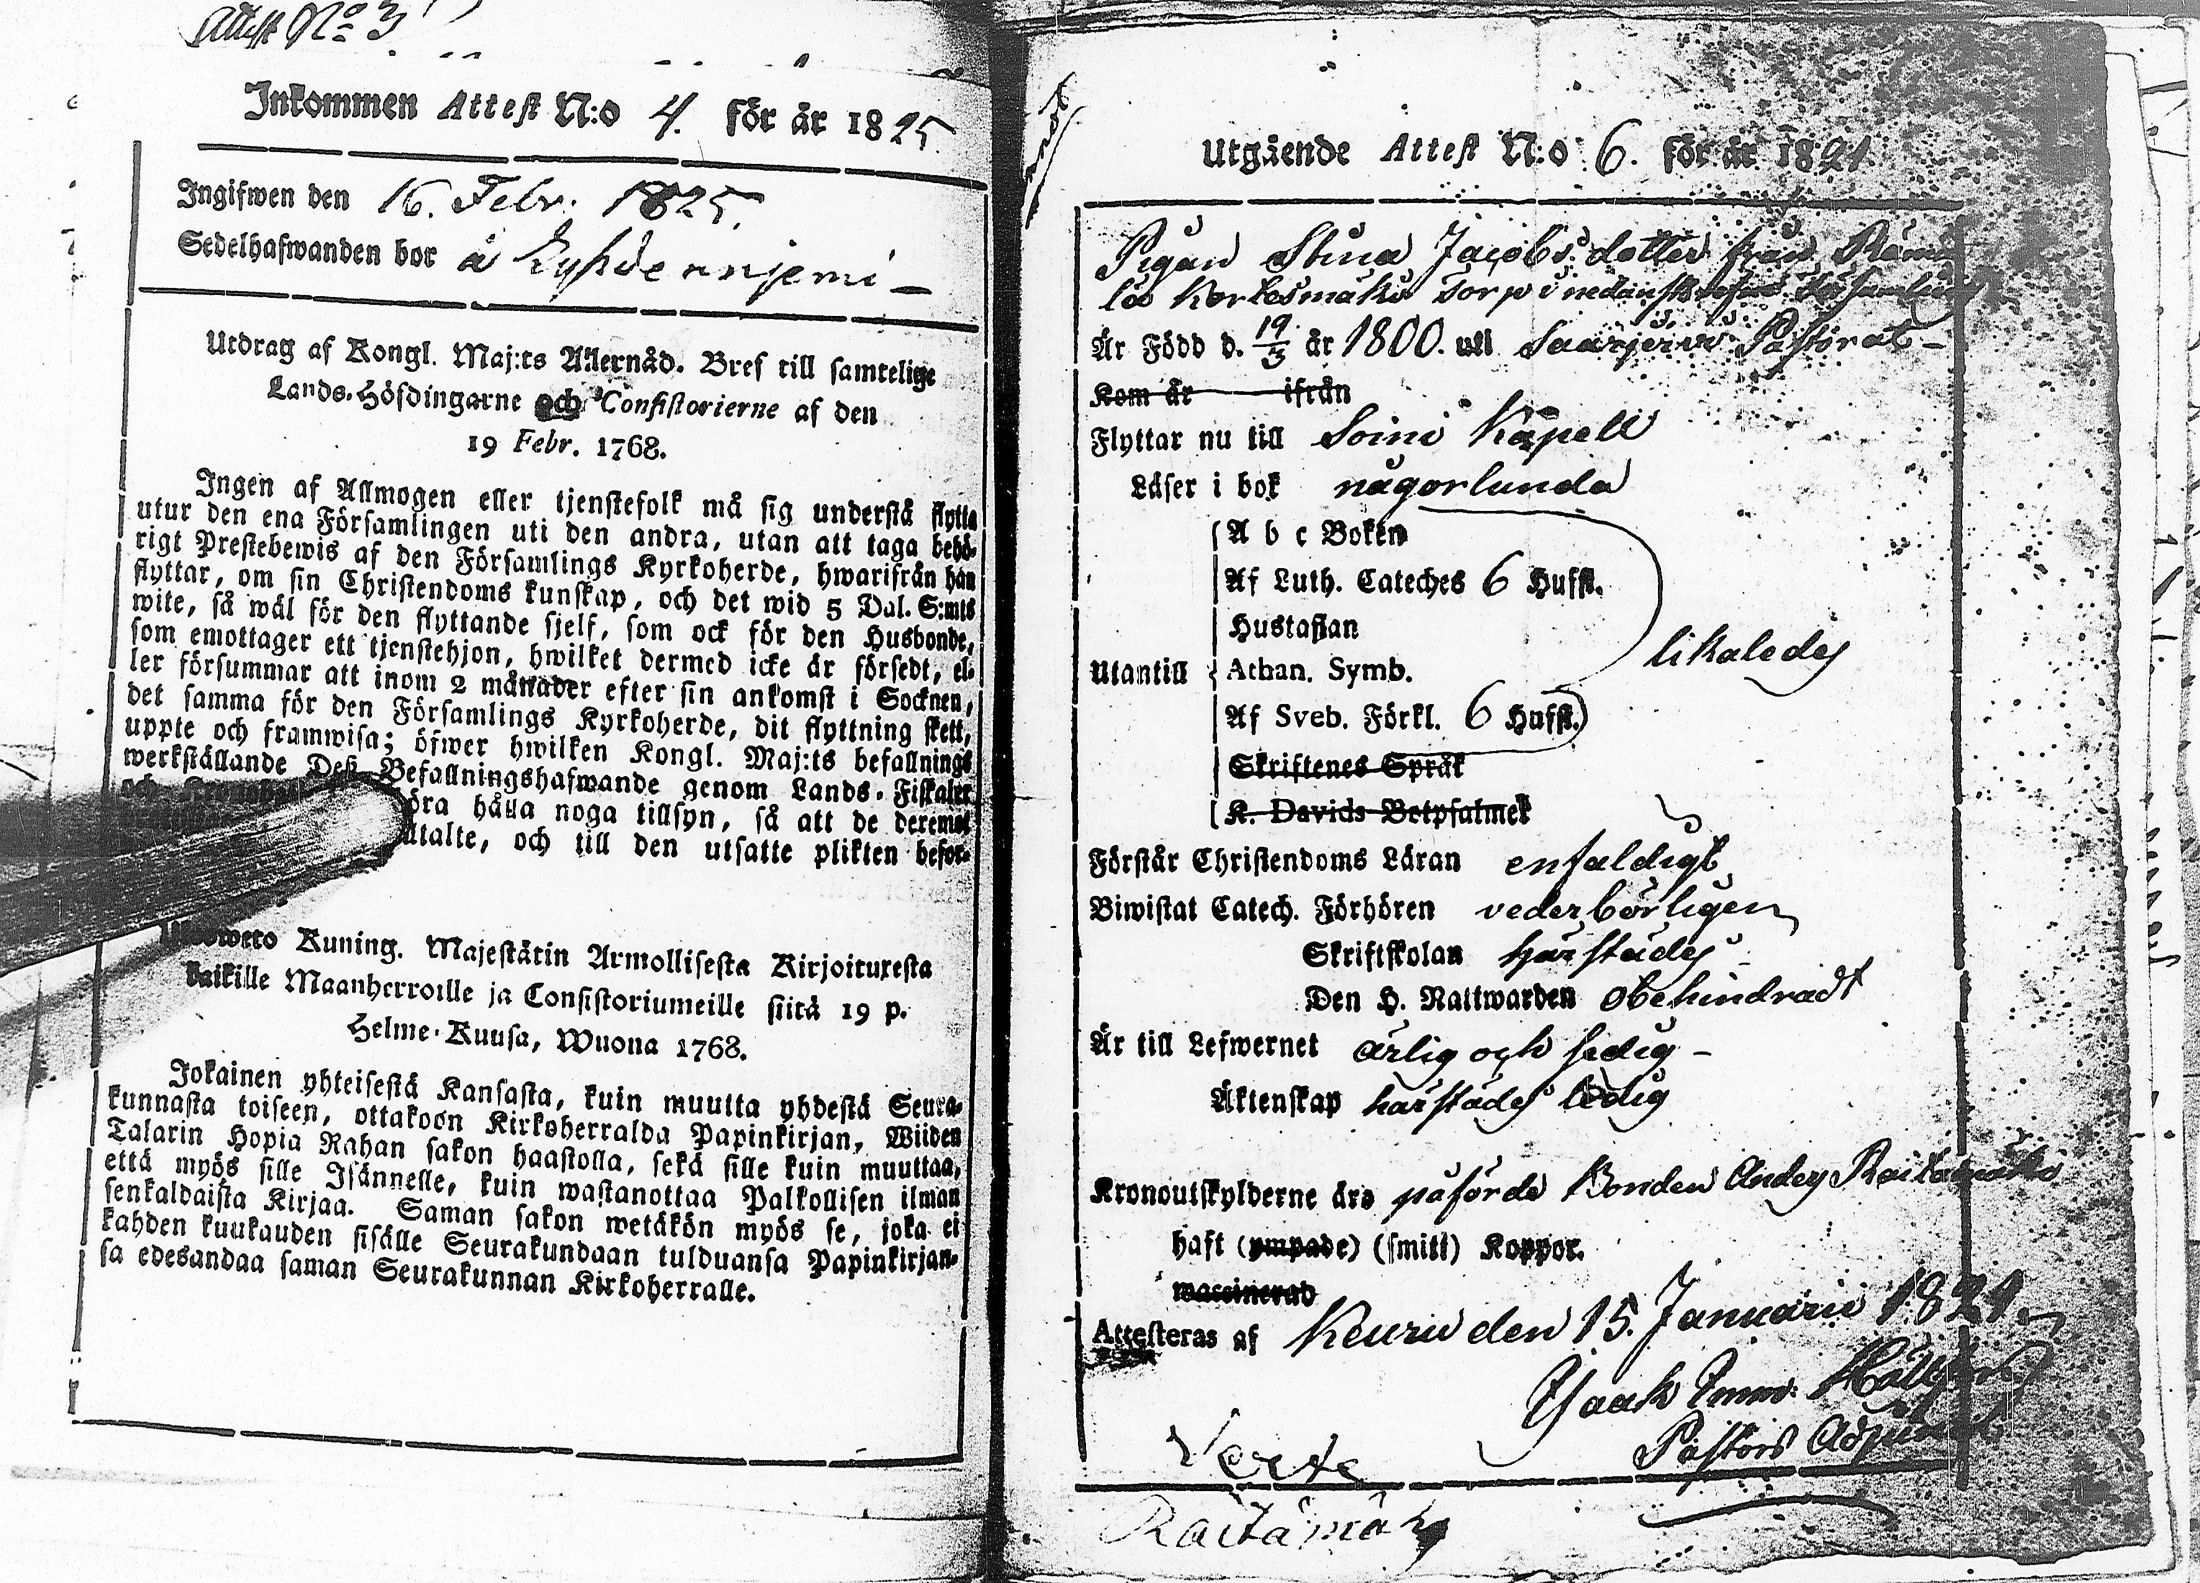 Attest No 3
Inkommen Attest N:o 4. för år 1825.
Ingifwen den 16. Febr. 1825.
Sedelhafwanden bor å
Utdrag af Kongl. Maj:ts Allernåd. Bref till samtelige
Lands-Höfdingarne och Consistorierne af den
19 Febr. 1768.
Ingen af Allmogen eller tjenstefolk må sig understå flytta
utur den ena Församlingen uti den andra, utan att taga behö-
rigt Prestebewis af den Församlings Kyrkoherde, hwarifrån han
flyttar, om sin Christendoms kunskap, och det wid 5 Dal. S:mts
wite, så wäl för den flyttande sjelf, som ock för den Husbonde,
som emottager ett tjenstehjon, hwilket dermed icke är försedt, el-
ler försummar att inom 2 månader efter sin ankomst i Socknen,
det samma för den Församlings Kyrkoherde, dit flyttning skett,
uppte och framwisa; öfwer hwilken Kongl. Maj:ts befallnings
werkställande Deß Befallningshafwande genom Lands-Fiskaler
och öra hålla noga tillsyn, så att de deremot
ltalte, och till den utsatte plikten befor-
Kuning. Majestätin Armollisesta Kirjoituxesta
kaikille Maanherroille ja Consistoriumeille siitä 19 p.
Helme-Kuusa, Wuona 1768.
Jokainen yhteisestä Kansasta, kuin muutta yhdestä Seura-
kunnasta toiseen, ottakoon Kirkoherralda Papinkirjan, Wiiden
Talarin Hopia Rahan sakon haastolla, sekä sille kuin muuttaa,
että myös sille Isännelle, kuin wastanottaa Palkollisen ilman
senkaldaista Kirjaa. Saman sakon wetäkön myös se, joka ei
kahden kuukauden sisälle Seurakundaan tulduansa Papinkirjan-
sa edesandaa saman Seurakunnan Kirkoherralle.
Utgående Attest N:o 6. för år 1821
Pigan Stina Jacobsdotter från
torp i
Är Född d. 19/3 år 1800. uti Saarijervi Pastorat –
Kom år ifrån
Flyttar nu till Soini Kapell
Läser i bok någorlunda
A b c Boken
Af Luth. Cateches 6 Hufst.
Hustaflan
Utantill Athan. Symb. likaledes
Af Sveb. Förkl. 6 Hufst.
Skriftenes Språk
K. Davids Botpsalmer
Förstår Christendoms Läran enfaldigt
Biwistat Catech. Förhören vederbörligen
Skriftskolan härstädes
Den H. Nattwarden obehindradt
Är till Lefwernet ärlig och sedig –
Äktenskap härstädes ledig
Kronoutskylderne äro påförde Bonden Anders Raitamäki
haft (ympade) (smitt) Koppor.
waccinerad
Attesteras af Keuru den 15. Januarii 1821.
Isaak Imm.
Pastors Adjunct.
Verte
Raitamäki